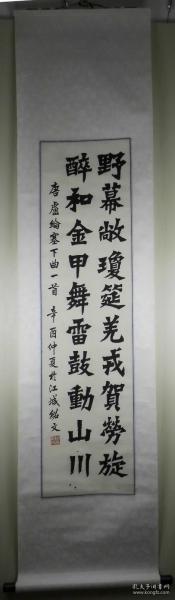 野幕敞瓊筵羌戎賀勞旋
醉和金甲舞雷鼓動山川
唐盧綸塞下曲一首 辛酉仲夏於江城紹文